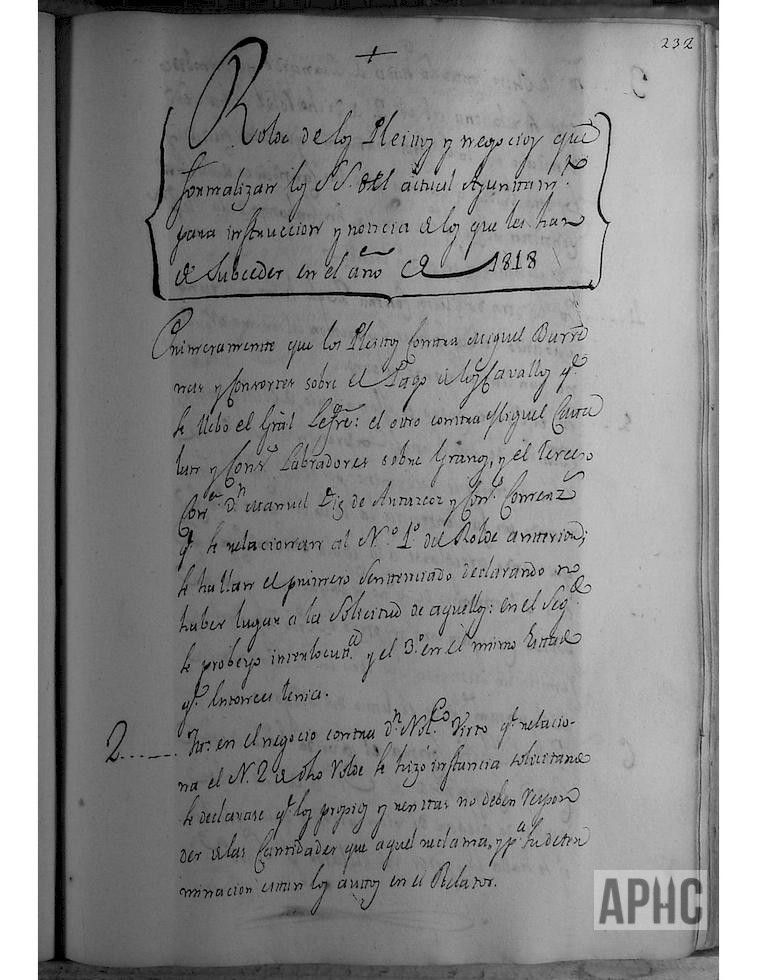 232
+
Rolde de los Pleitos y negocios que
formalizan los SS. del actual Ayuntam.to
para instruccion y noticia de los que les han
de Subceder en el año de 1818
Primeramente que los Pleitos contra Miguel
nas y Consortes sobre el Pago de los Cavallos q.e
se llebó el Gral Lefre: el otro contra Miguel
y Cons.s Labradores sobre Granos, y el Tercero
Con D.n Manuel Diz de y Con.s
q.e se relacionan al N.o 1.o del Rolde anterior;
se hallan el primero sentenciado declarando no
haber lugar a la Solicitud de aquellos: en el Seg.do
se probeyo y el 3.o en el mismo Estado
q.e entonces tenia.
2 It: en el negocio contra d.n Nol.co Virto q.e relacio-
na el N. 2 de dho Rolde se hizo instancia solicitando
se declarase q.e los propios y rentas no deben respon
der de las Cantidades que aquel reclama, y p.a su deter
minacion estan los autos en el Relator.
APHC